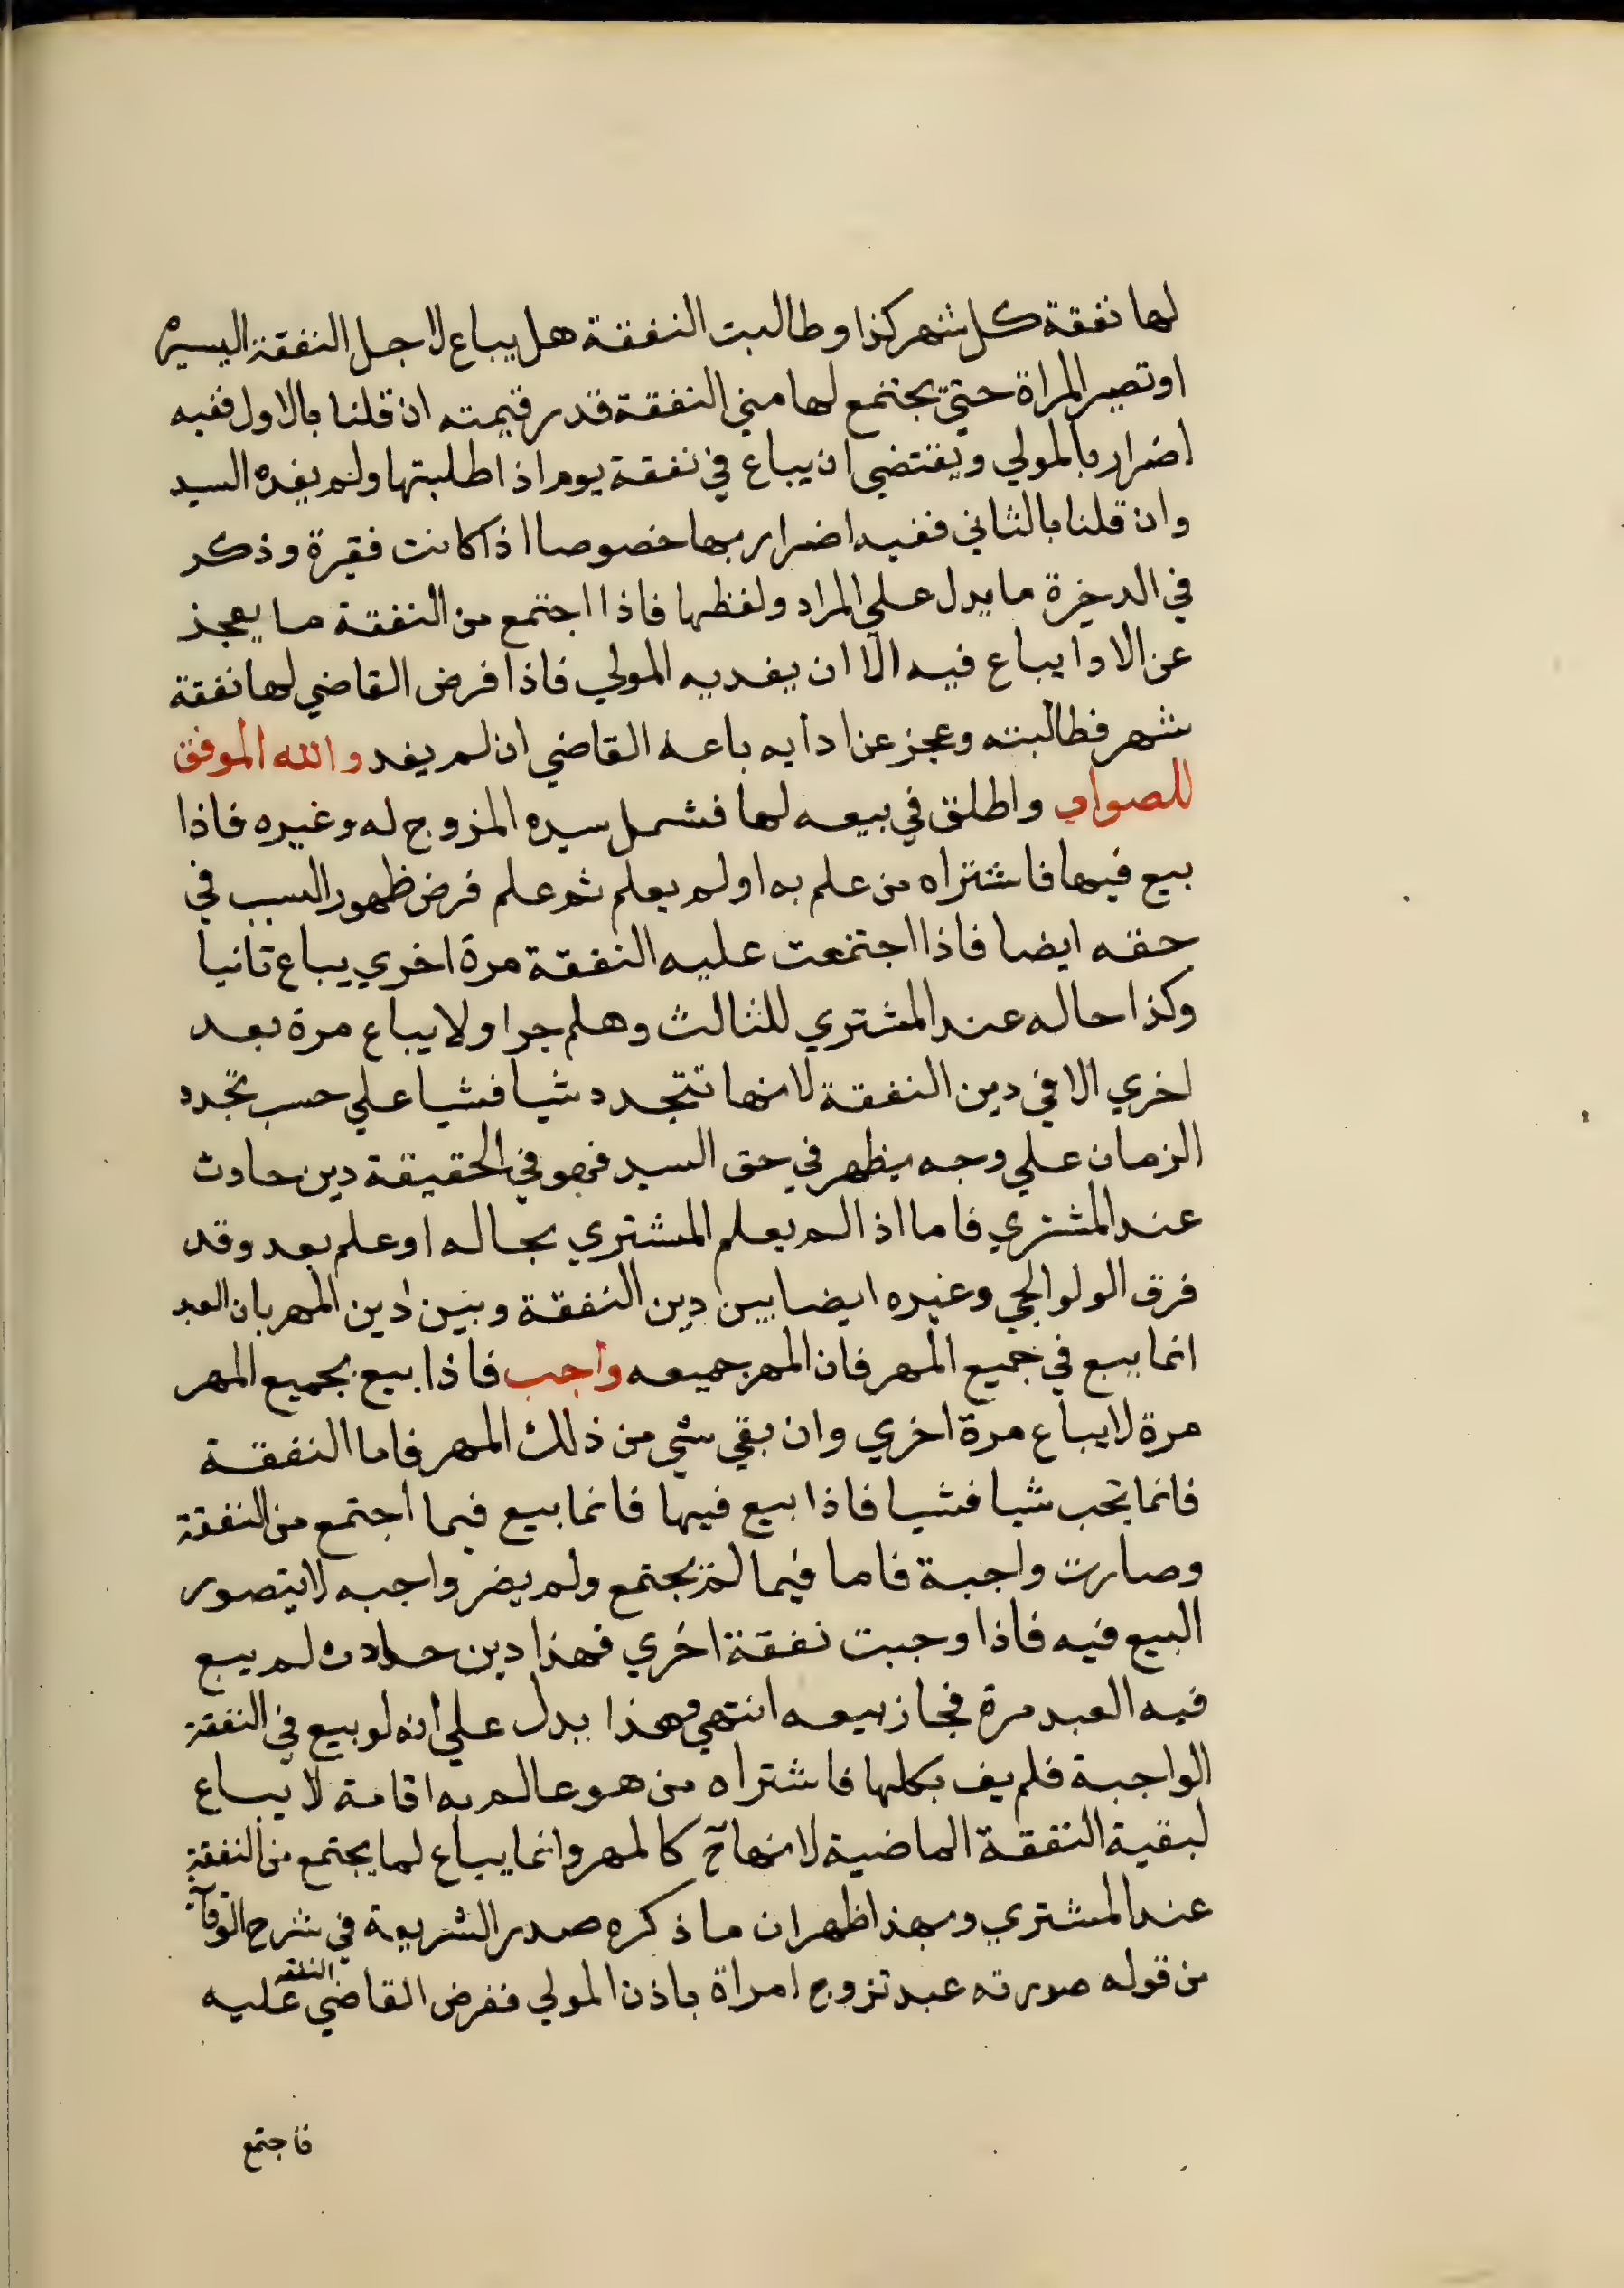 لها نفقة كل شهر كذا وطالبت النفقة هل يباع لاجل النفقة اليسيره
او تصير المراة حتي يجتمع لها مني النفقة قدر قيمته ان قلنا بالاول ففيه
اضرار بالمولي ويقتضي ان يباع في نفقة يوم اذا طلبتها ولم يفده السيد
وان قلنا بالثاني ففيه اضرار بها خصوصا اذا كانت فقيرة وذكر
في الدخيرة ما يدل علي المراد ولفظها فاذا اجتمع من النفقة ما يعجز
عن الادا يباع فيه الا ان يفديه المولي فاذا فرض القاضي لها نفقة
شهر فطالبته وعجز عن ادايه باعه القاضي ان لم يفد والله الموفق
للصواب واطلق في بيعه لها فشمل سيده المزوج له وغيره فاذا
بيع فيها فاشتراه من علم به او لم يعلم ثم علم فرض ظهور السبب في
حقه ايضا فاذا اجتمعت عليه النفقة مرة اخري يباع ثانيا
وكذا حاله عند المشتري للثالث وهلم جرا ولا يباع مرة بعد
اخري الا في دين النفقة لانها تتجدد شيا فشيا علي حسب تجدد
الزمان علي وجه يظهر في حق السيد فهو في الحقيقة دين حادث
عند المشتري فاما اذا لم يعلم المشتري بحاله او علم بعد وقد
فرق الولوالجي وغيره ايضا بين دين النفقة وبين دين المهر بان العبد
انما بيع في جميع المهر فان المهر جميعه واجب فاذا بيع بجميع المهر
مرة لا يباع مرة اخري وان بقي شي من ذلك المهر فاما النفقة
فانما تجب شيا فشيا فاذا بيع فيها فانما بيع فيما اجتمع من النفقة
وصارت واجبة فاما فيما لم يجتمع ولم يضر واجبه لا يتصور
البيع فيه فاذا وجبت نفقة اخري فهذا دين حادث لم يبع
فيه العبد مرة فجاز بيعه انتهي وهذا يدل علي انه لو بيع في النفقة
الواجبة فلم يف بكلها فاشتراه من هو عالم به اقامة لا يباع
لبقية النفقة الماضية لانها ح كالمهر وانما يباع لما يجتمع من النفقة
عند المشتري وبهذا ظهر ان ما ذكره صدر الشريعة في شرح الوقاية
من قوله صورته عبد تزوج امراة باذن المولي ففرض القاضي النفقه عليه
فاجتمع